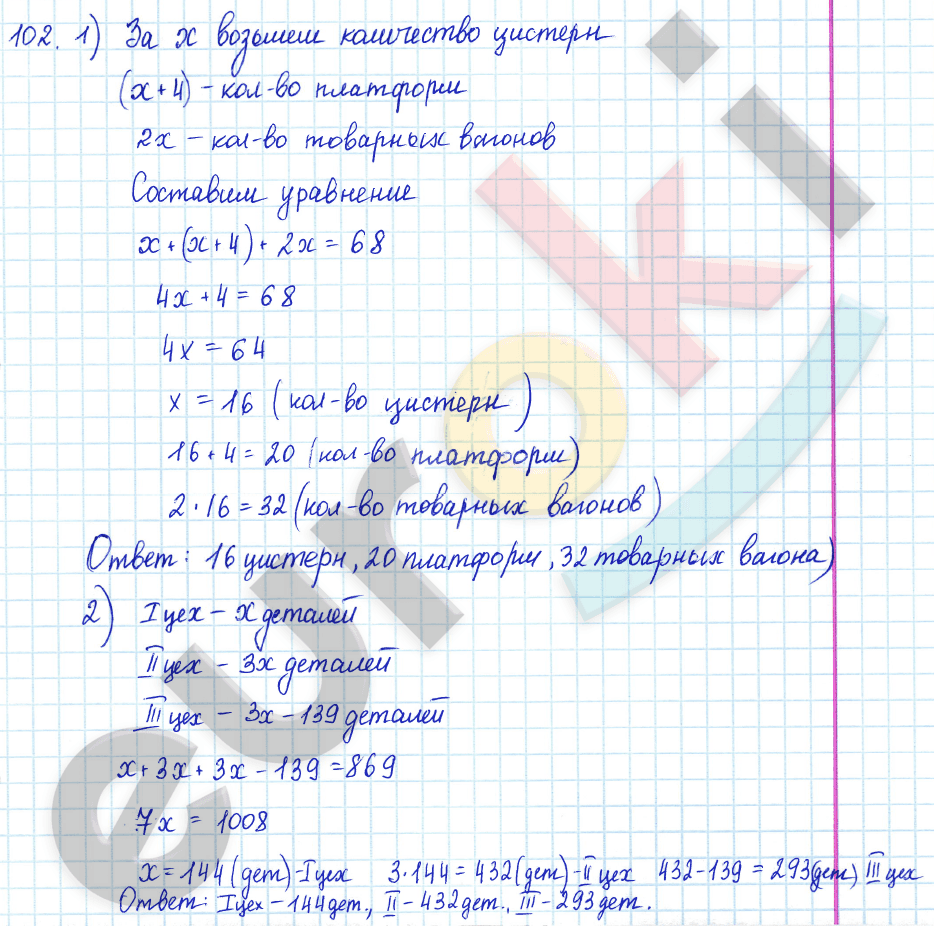 102. 1) За x возьмем количество цистерн
(x+4) - кол-во платформ
2x - кол-во товарных вагонов
Составим уравнение
x+(x+4)+2x=68
4x+4=68
4x=64
x=16 (кол-во цистерн)
16+4=20 (кол-во платформ)
2·16=32 (кол-во товарных вагонов)
Ответ: 16 цистерн, 20 платформ, 32 товарных вагона)
2) I цех - x деталей
II цех - 3x деталей
III цех - 3x-139 деталей
x+3x+3x-139=869
7x = 1008
x=144 (дет)-I цех 3·144=432(дет)-II цех 432-139=293(дет) III цех
Ответ: I цех-144дет., II-432дет., III-293дет.
euroki